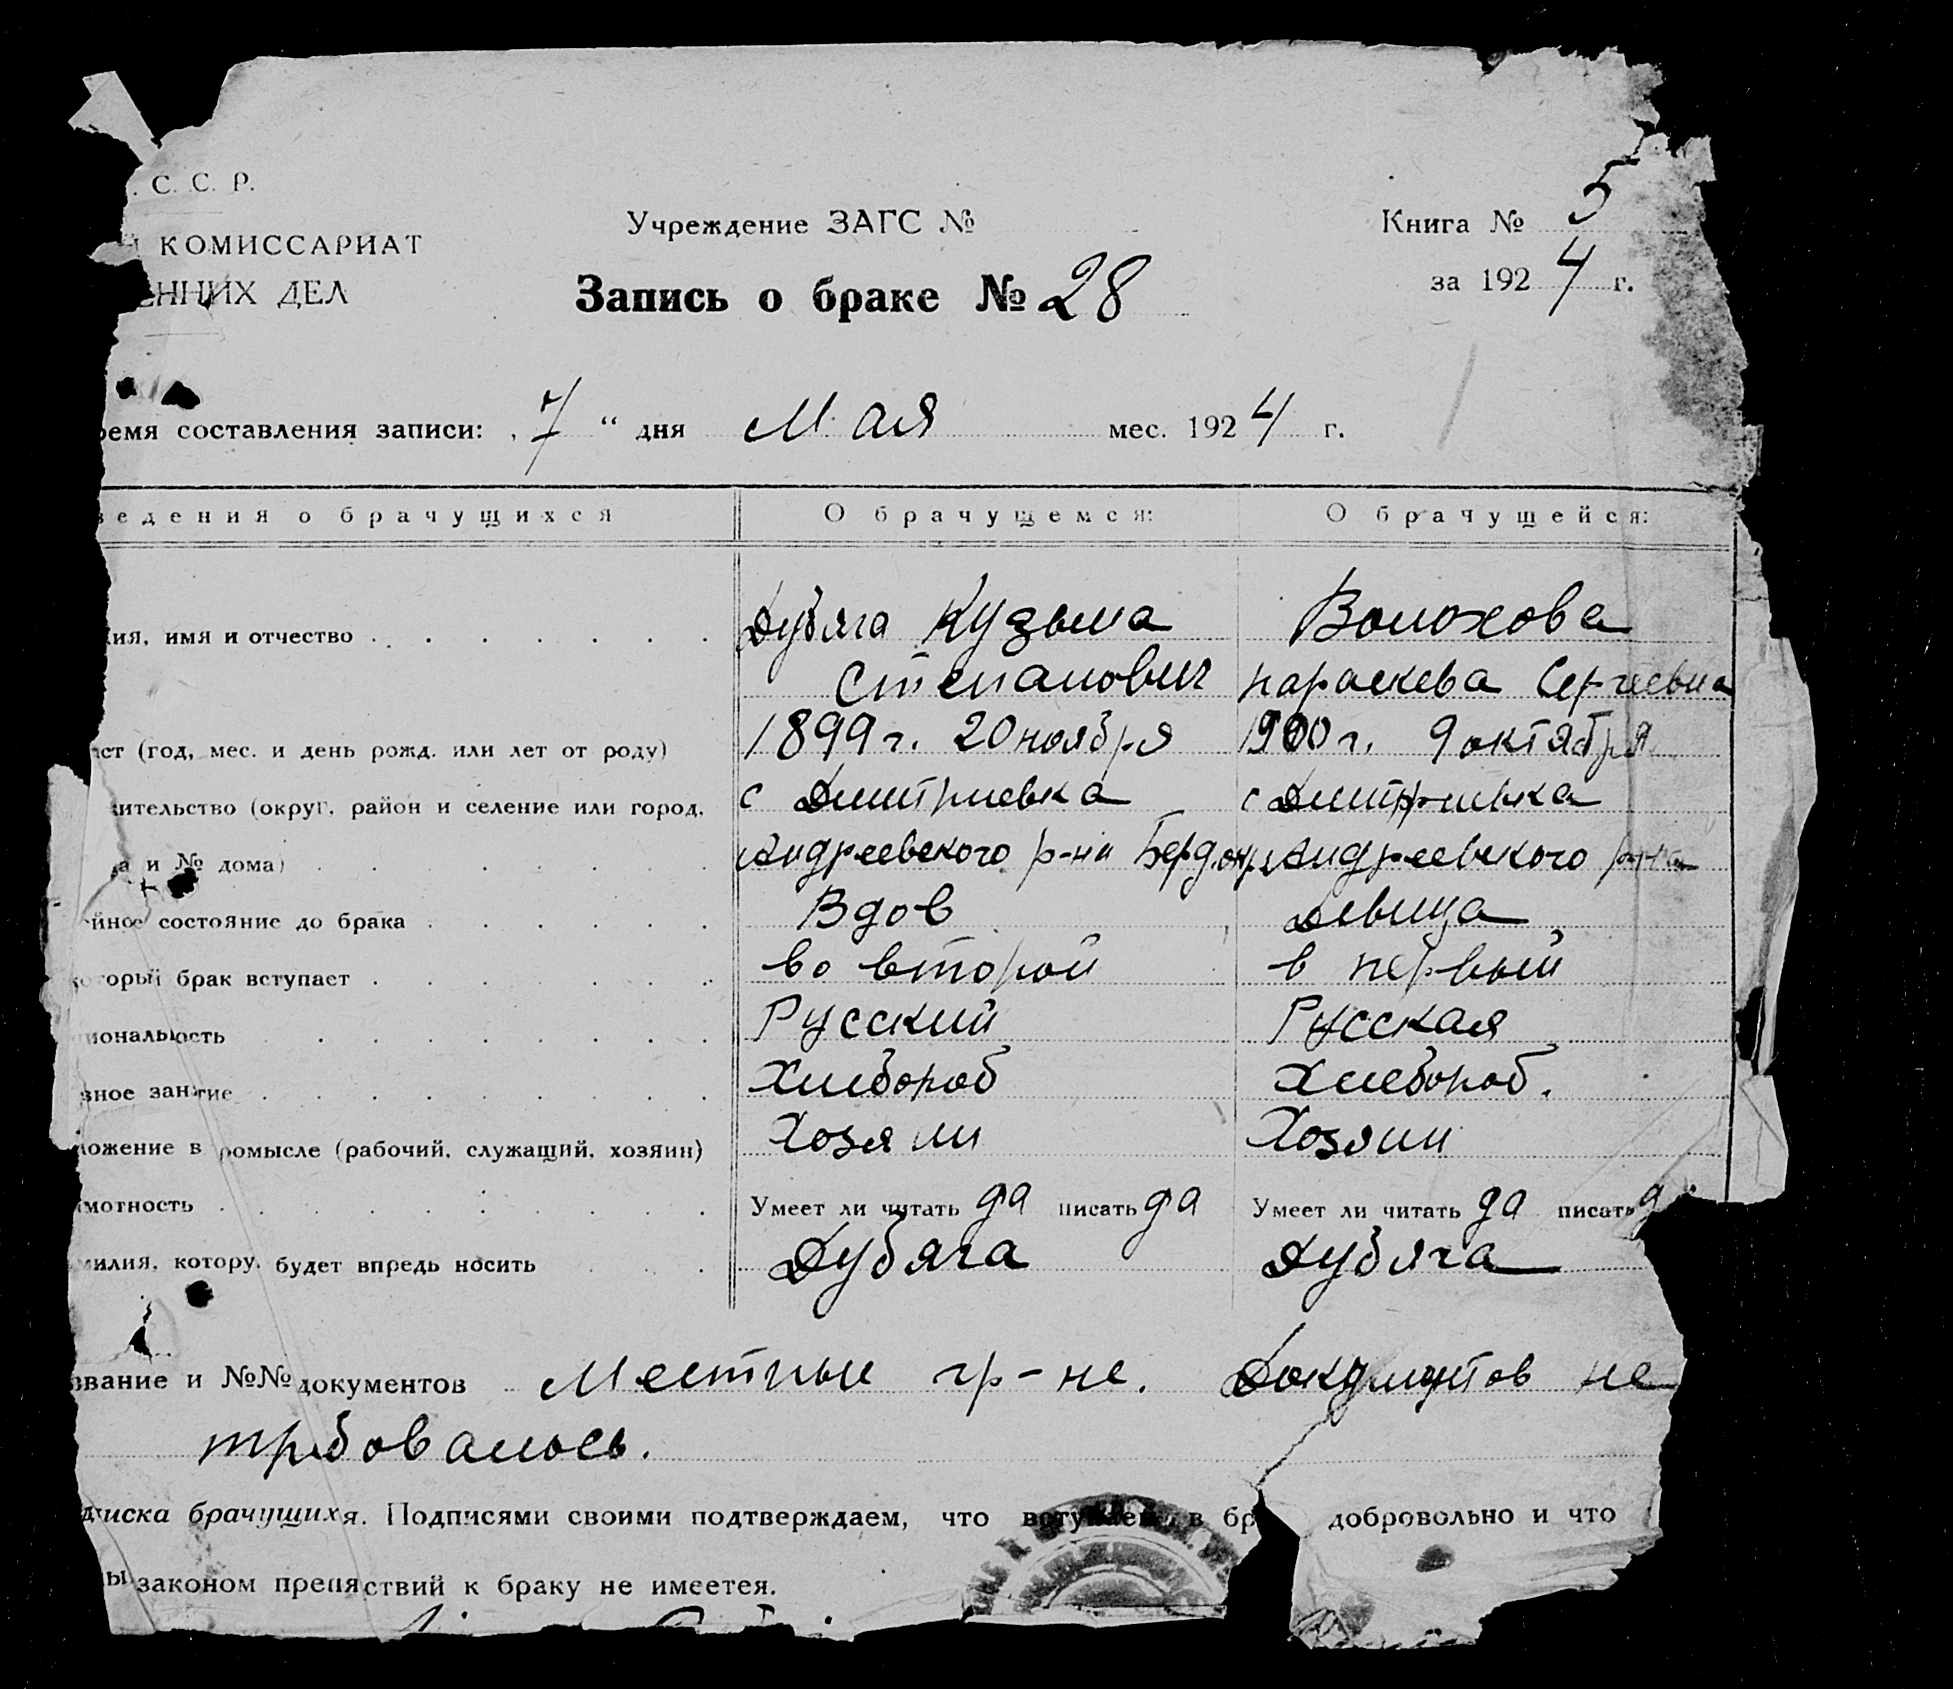 . С. С. Р.
КОМИССАРИАТ
ЕННИХ ДЕЛ
Учреждение ЗАГС №
Запись о браке № 28
Книга № 5
за 1924 г.
ремя составления записи: „7“ дня Мая мес. 1924 г.
ведения о брачущихся О брачущемся: О брачущейся:
ия, имя и отчество Дубяга Кузьма Волохова
Степанович Параскева Сергеевна
ст (год, мес. и день рожд. или лет от роду) 1899 г. 20 ноября 1900 г. 9 октября
ительство (округ, район и селение или город, с Дмитриевка с Дмитриевка
а и № дома) Андреевского р-на Бердокр Андреевского р-на
йное состояние до брака Вдов Девица
который брак вступает во второй в первый
иональность Русский Русская
вное занятие Хлебороб Хлебороб.
ложение в промысле (рабочий, служащий, хозяин) Хозяин Хозяин
мотность Умеет ли читать да писать да Умеет ли читать да писать д
милия, котору. будет впредь носить Дубяга Дубяга
звание и №№ документов Местные гр-не. Документов не
требовалось.
дписка брачущихся. Подписями своими подтверждаем, что вступаем в бр добровольно и что
ы законом препяствий к браку не имеетея.